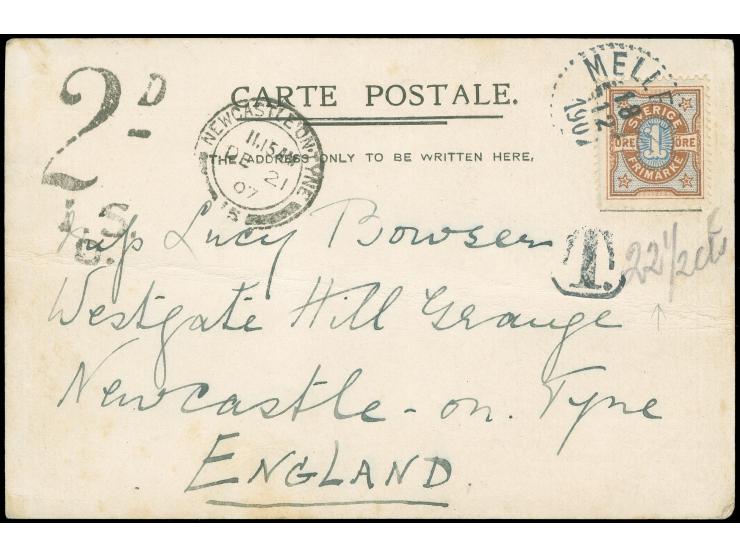 2D
I.S.
CARTE POSTALE.
THE ADDRESS ONLY TO BE WRITTEN HERE,
NEWCASTLE-ON-TYNE
11.15AM
DE 21
07
MELLE
18 12
190
SVERIGE
1
ÖRE ÖRE
FRIMÄRKE
T.
22 1/2 cts
Miss Lucy Bowser
Westgate Hill Grange
Newcastle-on-Tyne
ENGLAND.